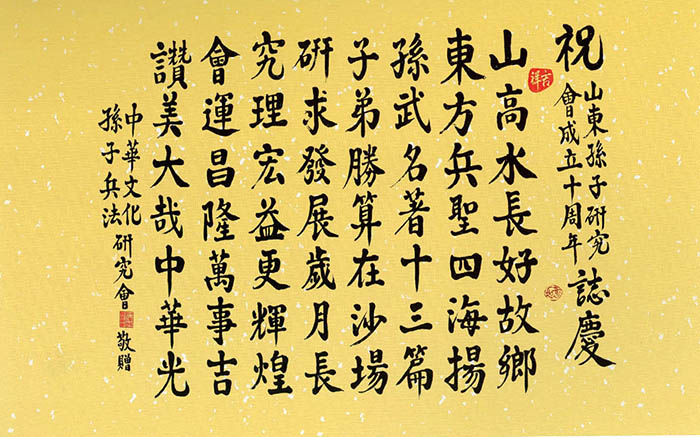 祝
山東孫子研究
會成立十周年
誌慶
吉祥
山高水長好故鄉
東方兵聖四海揚
孫武名著十三篇
子弟勝算在沙場
研求發展歲月長
究理宏益更輝煌
會運昌隆萬事吉
讚美大哉中華光
中華文化
孫子兵法
研究會
敬贈